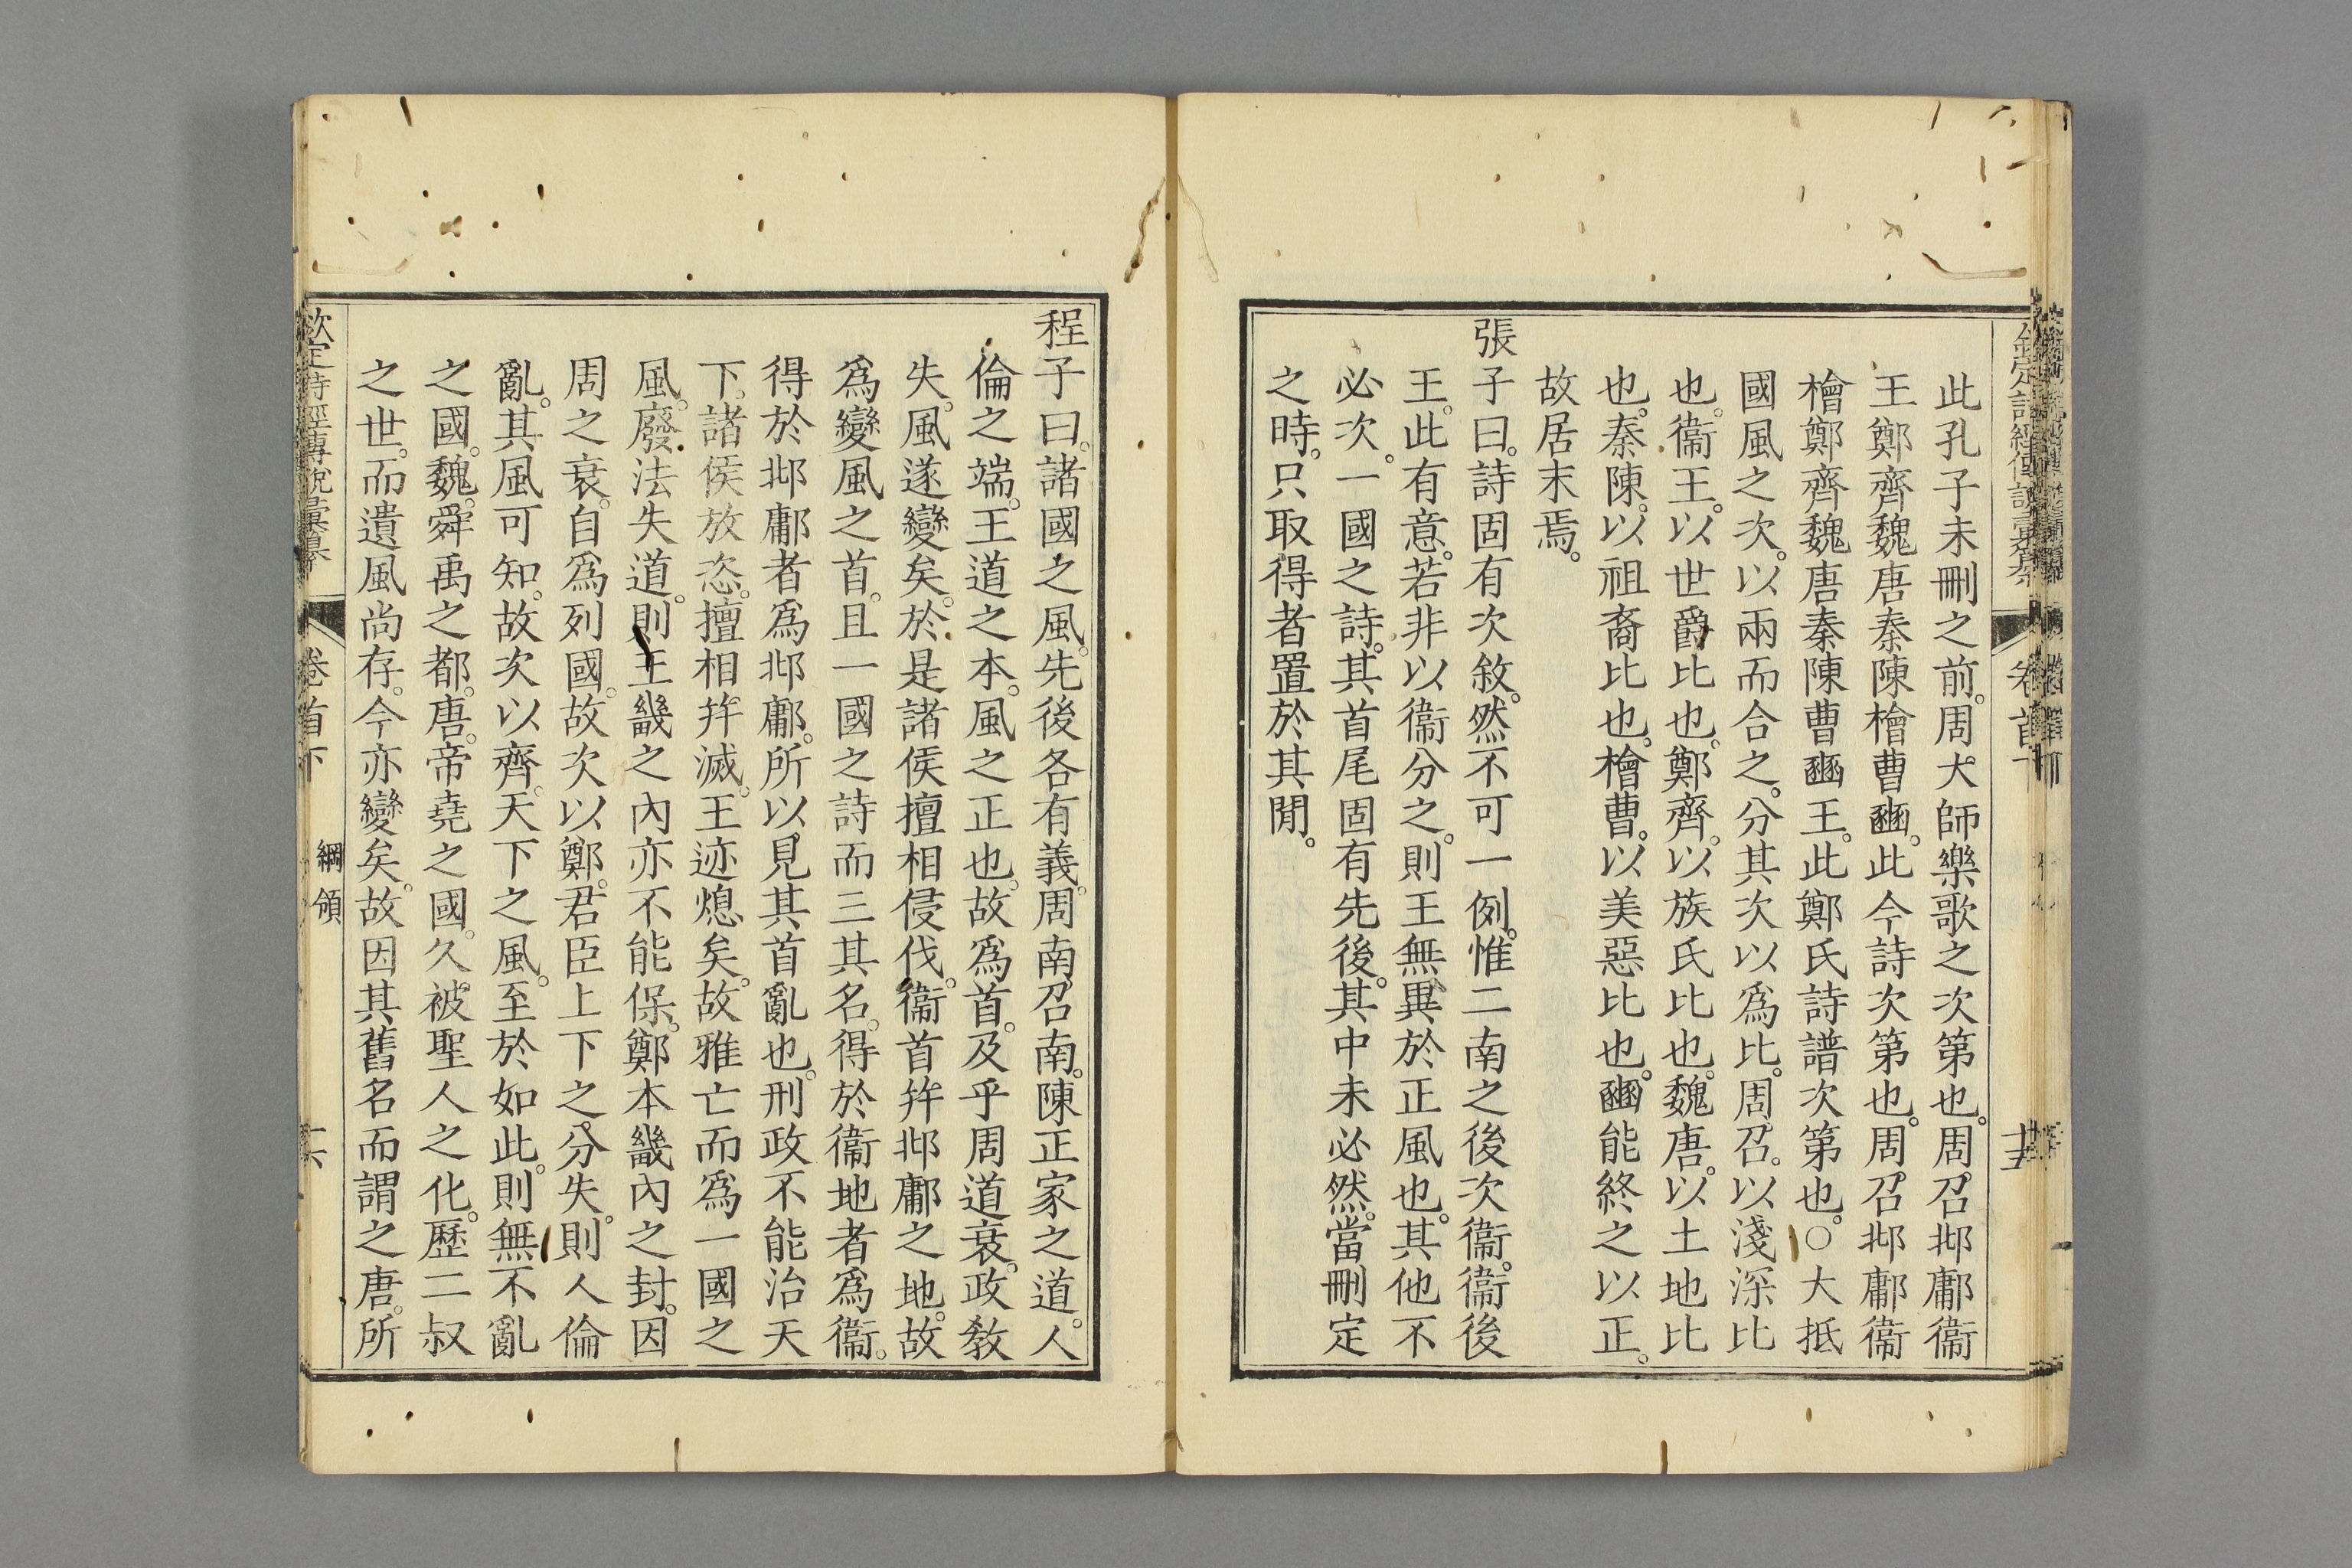 此孔子未刪之前。周大師樂歌之次第也。周。召邶鄘衞
王鄭齊魏唐秦陳檜曹豳。此今詩次第也。周。召邶鄘衞
檜鄭齊魏唐秦陳曹豳王。此鄭氏詩譜次第也。○大抵
國風之次。以兩而合之。分其次以爲比。周。召。以淺深比
也。衞王。以世爵比也。鄭齊。以族氏比也。魏唐。以土地比
也。秦陳。以祖裔比也。檜曹。以美惡比也。豳能終之以正。
故居末焉。
張子曰。詩固有次敘。然不可一例。惟二南之後次衞。衞後
王。此有意。若非以衞分之。則王無異於正風也。其他不
必次。一國之詩。其首尾固有先後。其中未必然。當刪定
之時。只取得者置於其閒。
程子曰。諸國之風。先後各有義。周南召南。陳正家之道。人
倫之端。王道之本。風之正也。故爲首。及乎周道衰。政敎
失。風遂變矣。於是諸侯擅相侵伐。衞首幷邶鄘之地。故
爲變風之首。且一國之詩而三其名。得於衞地者爲衞。
得於邶鄘者爲邶鄘。所以見其首亂也。刑政不能治天
下。諸侯放恣。擅相幷滅。王迹熄矣。故雅亡而爲一國之
風。廢法失道。則王畿之內亦不能保。鄭本畿內之封。因
周之衰。自爲列國。故次以鄭。君臣上下之分失。則人倫
亂。其風可知。故次以齊。天下之風。至於如此。則無不亂
之國。魏。舜禹之都。唐。帝堯之國。久被聖人之化。歷二叔
之世。而遺風尚存。今亦變矣。故因其舊名而謂之唐。所
欽定詩經傳說彙纂
卷首下
綱領